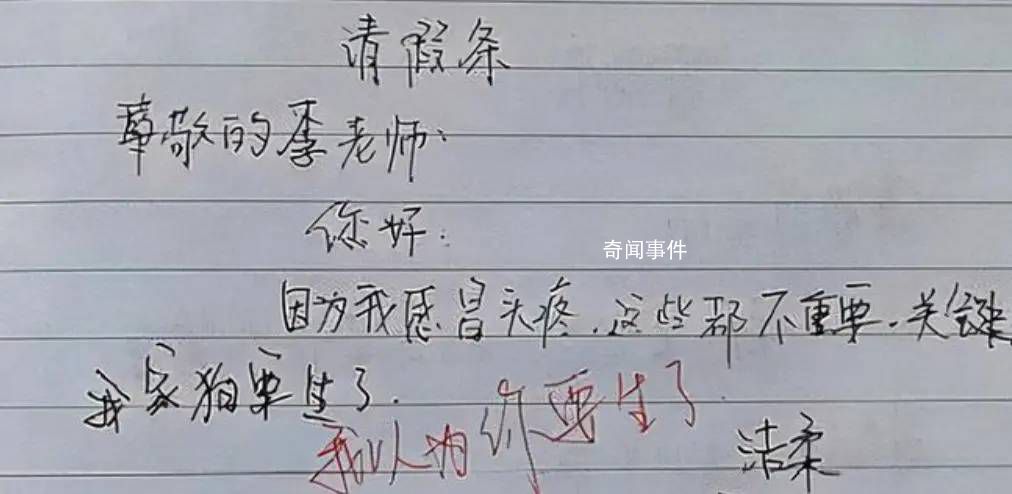 请假条
尊敬的李老师：
你好：
奇闻事件
因为我感冒头疼，这些都不重要，关键
我家狗要生了．
我以为你要生了
洁柔